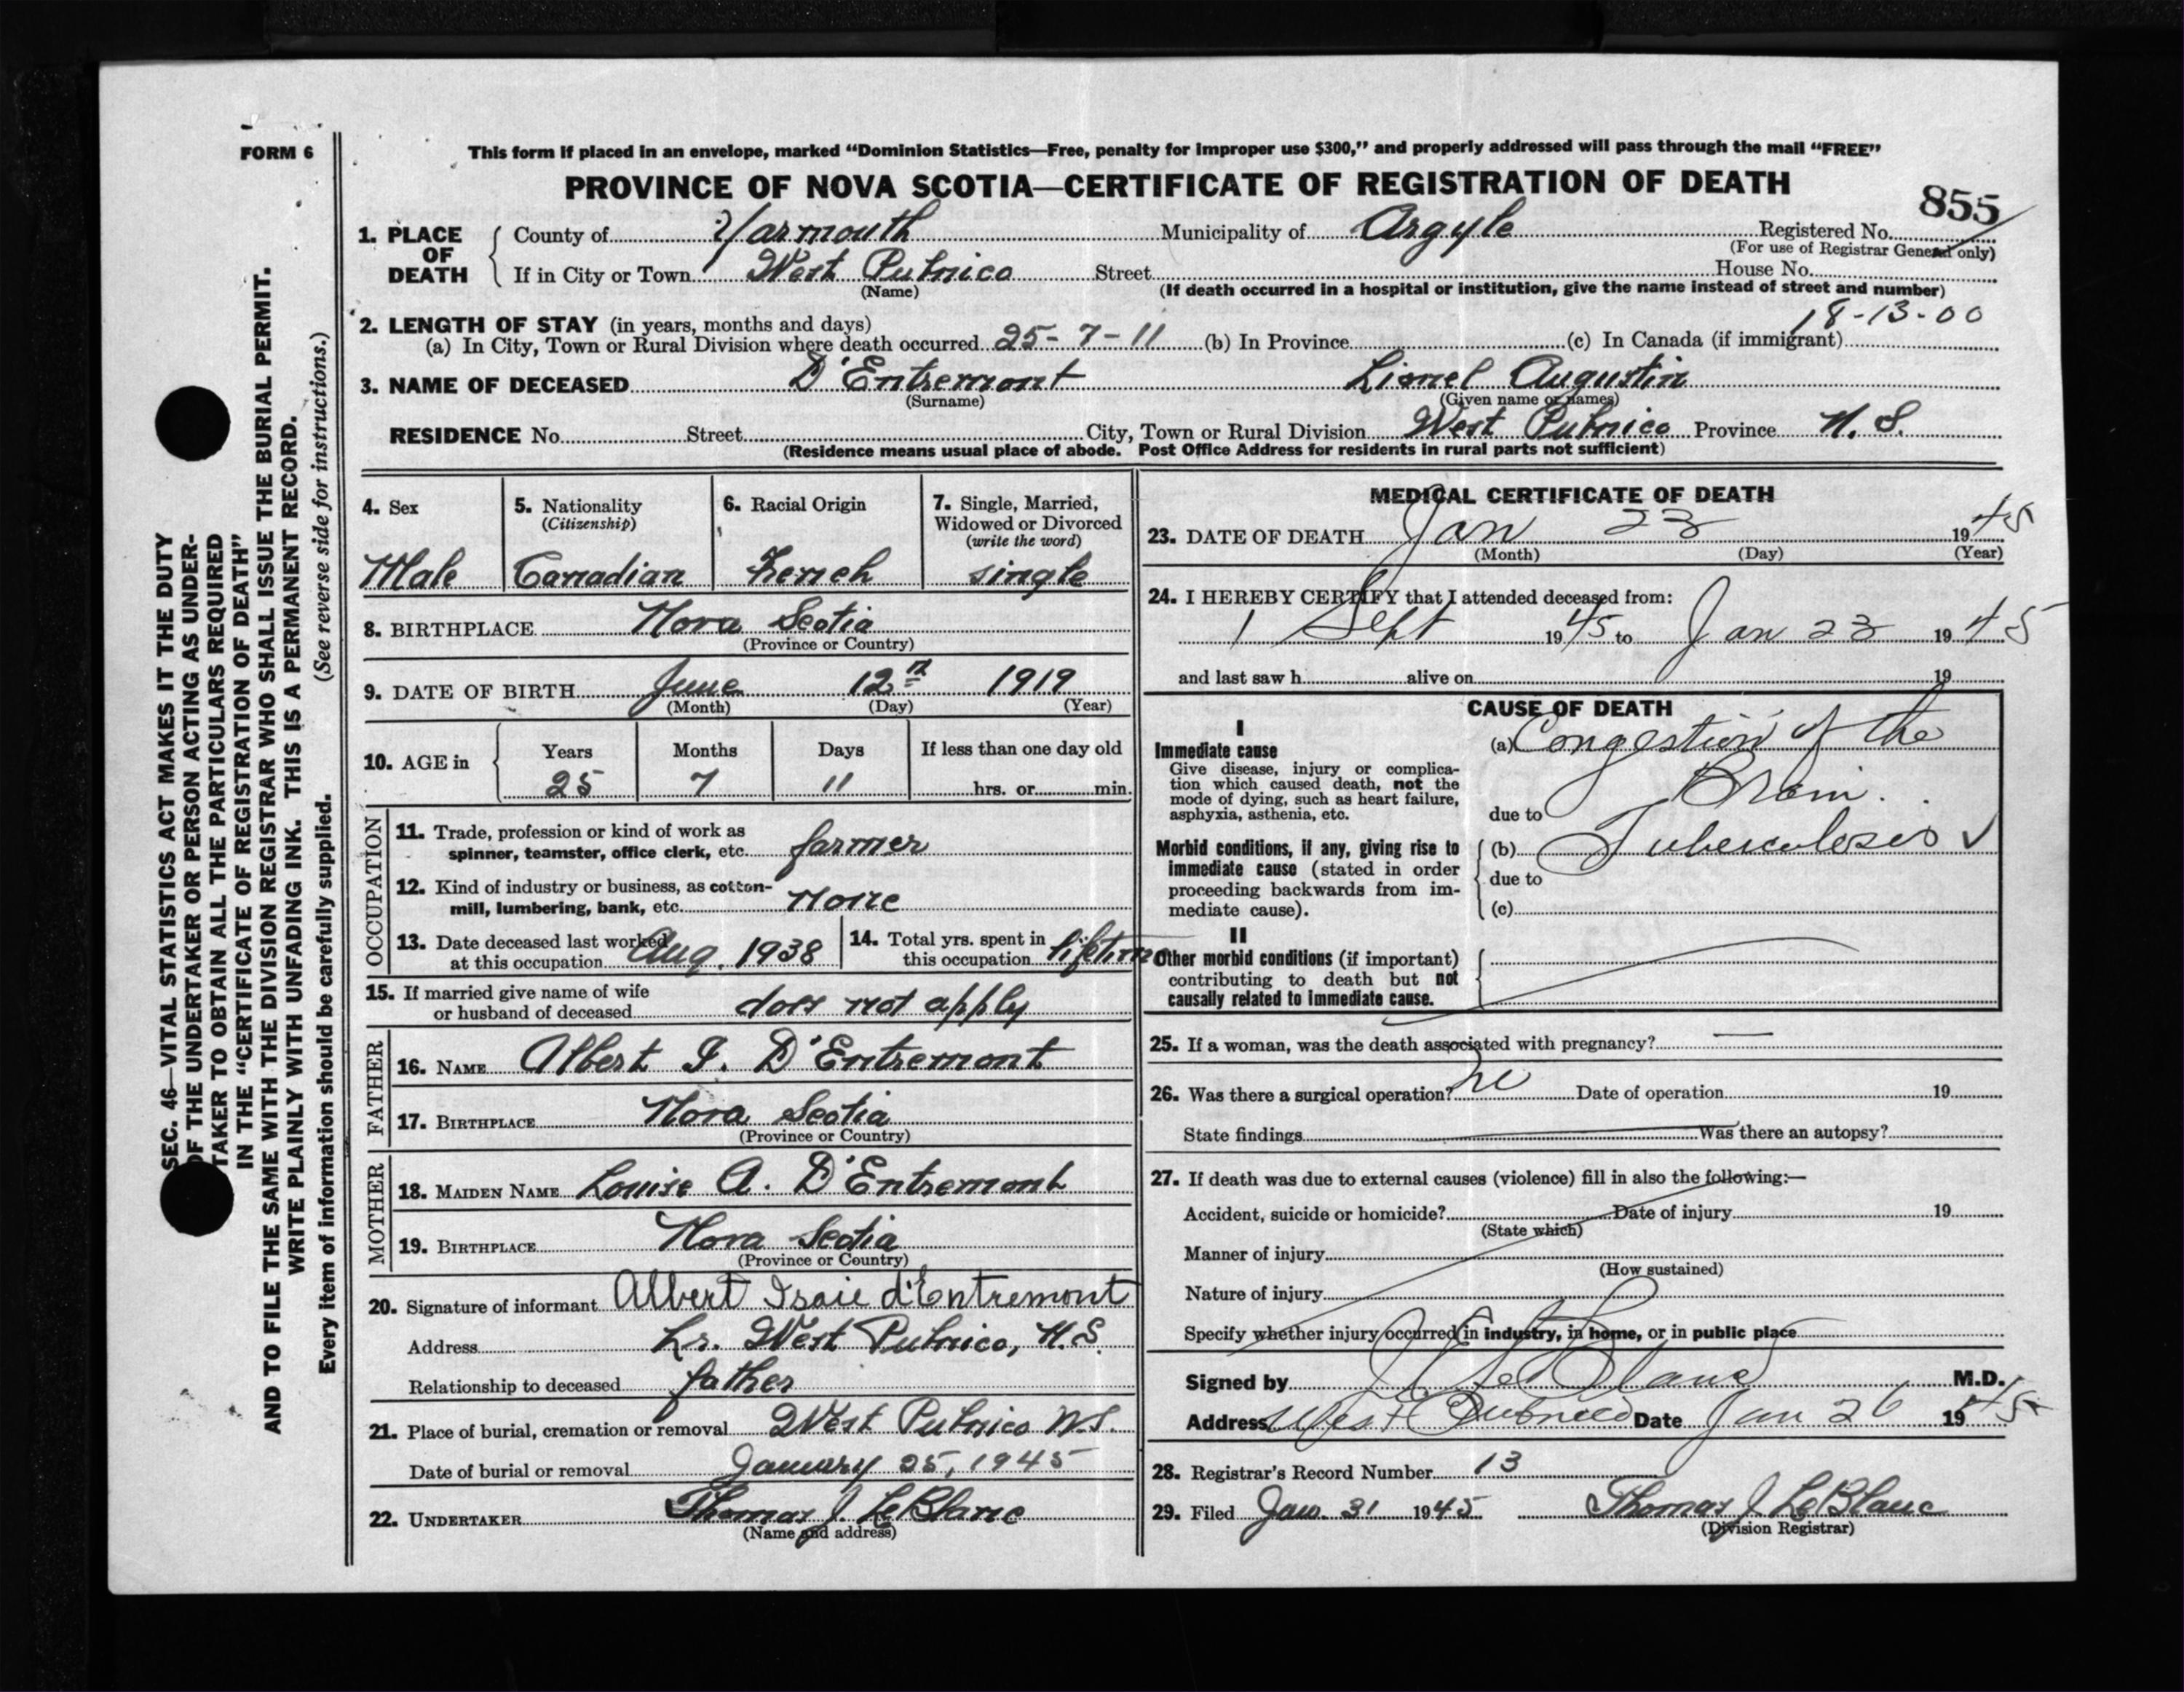 FORM 6
This form if placed in an envelope, marked “Dominion Statistics—Free, penalty for improper use $300,” and properly addressed will pass through the mail “FREE”
PROVINCE OF NOVA SCOTIA—CERTIFICATE OF REGISTRATION OF DEATH
855
1. PLACE OF DEATH
County of Yarmouth Municipality of Argyle Registered No.
(For use of Registrar General only)
If in City or Town West Pubnico Street House No.
(Name) (If death occurred in a hospital or institution, give the name instead of street and number)
18-13-00
2. LENGTH OF STAY (in years, months and days)
(a) In City, Town or Rural Division where death occurred 25-7-11 (b) In Province (c) In Canada (if immigrant)
3. NAME OF DECEASED D'Entremont Lionel Augustin
(Surname) (Given name or names)
RESIDENCE No. Street City, Town or Rural Division West Pubnico Province N. S.
(Residence means usual place of abode. Post Office Address for residents in rural parts not sufficient)
4. Sex
Male
5. Nationality
(Citizenship)
Canadian
6. Racial Origin
French
7. Single, Married,
Widowed or Divorced
(write the word)
single
8. BIRTHPLACE Nova Scotia
(Province or Country)
9. DATE OF BIRTH June 12th 1919
(Month) (Day) (Year)
10. AGE in
Years Months Days If less than one day old
25 7 11 hrs. or min.
OCCUPATION
11. Trade, profession or kind of work as
spinner, teamster, office clerk, etc. farmer
12. Kind of industry or business, as cotton-
mill, lumbering, bank, etc. None
13. Date deceased last worked
at this occupation Aug. 1938
14. Total yrs. spent in
this occupation lifetime
15. If married give name of wife
or husband of deceased does not apply
FATHER
16. NAME Albert I. D'Entremont
17. BIRTHPLACE Nova Scotia
(Province or Country)
MOTHER
18. MAIDEN NAME Louise A. D'Entremont
19. BIRTHPLACE Nova Scotia
(Province or Country)
20. Signature of informant Albert Isaie d'Entremont
Address Lr. West Pubnico, N.S.
Relationship to deceased father
21. Place of burial, cremation or removal West Pubnico N.S.
Date of burial or removal January 25, 1945
22. UNDERTAKER Thomas J. LeBlanc
(Name and address)
MEDICAL CERTIFICATE OF DEATH
23. DATE OF DEATH Jan 23 1945
(Month) (Day) (Year)
24. I HEREBY CERTIFY that I attended deceased from:
1 Sept 1945 to Jan 23 1945
and last saw h alive on 19
CAUSE OF DEATH
I
Immediate cause
Give disease, injury or complica-
tion which caused death, not the
mode of dying, such as heart failure,
asphyxia, asthenia, etc.
(a) Congestion of the
Brain.
due to
Morbid conditions, if any, giving rise to
immediate cause (stated in order
proceeding backwards from im-
mediate cause).
(b) Tuberculosis ✓
due to
(c)
II
Other morbid conditions (if important)
contributing to death but not
causally related to immediate cause.
25. If a woman, was the death associated with pregnancy? —
26. Was there a surgical operation? no Date of operation 19
State findings Was there an autopsy?
27. If death was due to external causes (violence) fill in also the following:—
Accident, suicide or homicide? Date of injury 19
(State which)
Manner of injury
(How sustained)
Nature of injury
Specify whether injury occurred in industry, in home, or in public place
Signed by LeBlanc M.D.
Address West Pubnico Date Jan 26 1945
28. Registrar's Record Number 13
29. Filed Jan. 31 1945 Thomas J. LeBlanc
(Division Registrar)
SEC. 46—VITAL STATISTICS ACT MAKES IT THE DUTY
OF THE UNDERTAKER OR PERSON ACTING AS UNDER-
TAKER TO OBTAIN ALL THE PARTICULARS REQUIRED
IN THE “CERTIFICATE OF REGISTRATION OF DEATH”
AND TO FILE THE SAME WITH THE DIVISION REGISTRAR WHO SHALL ISSUE THE BURIAL PERMIT.
WRITE PLAINLY WITH UNFADING INK. THIS IS A PERMANENT RECORD.
Every item of information should be carefully supplied. (See reverse side for instructions.)